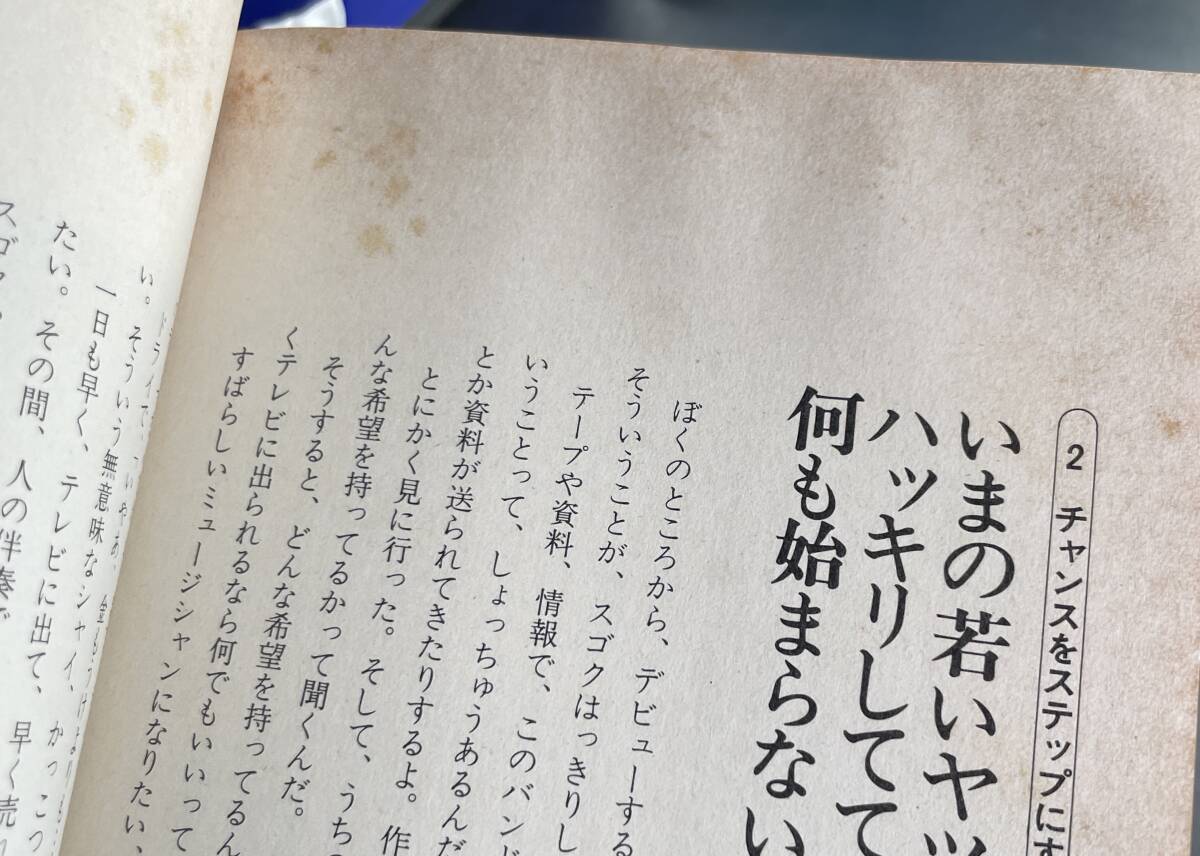 2 チャンスをステップにす
いまの若いヤッ
ハッキリしてて
何も始まらない
ぼくのところから、デビューする
そういうことが、スゴクはっきりし
テープや資料、情報で、このバンド
いうことって、しょっちゅうあるんだ
とか資料が送られてきたりするよ。作
とにかく見に行った。そして、うちの
んな希望を持ってるかって聞くんだ。
そうすると、どんな希望を持ってるん
くテレビに出られるなら何でもいいって
すばらしいミュージシャンになりたい、
い。そういう無意味なシャイ、かっこつ
一日も早く、テレビに出て、早く売れ
たい。その間、人の伴奏で